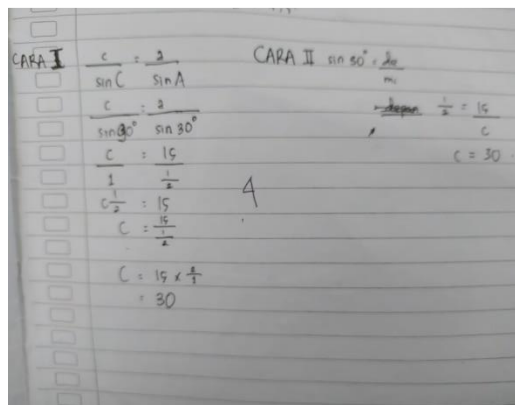 CARA I
c/sin C = a/sin A
c/sin 90° = a/sin 30°
c/1 = 15/½
c½ = 15
C = 15/½
C = 15 × 2/1
= 30
4
CARA II sin 30° = de/mi
½ = 15/c
C = 30